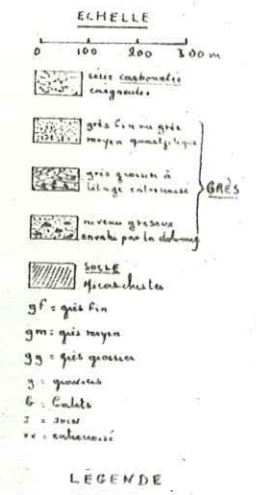 ECHELLE
0 100 200 300 m
série carbonatée
cargneules
grès fin ou grès
moyen quartzitique
grès grossier à
litage entrecroisé
GRÈS
niveau gréseux
envahi par la dolomie
SOCLE
Micaschistes
gf = grès fin
gm : grès moyen
gg = grès grossier
g : graviers
G : Galets
J = Joint
xx = entrecroisé
LÉGENDE